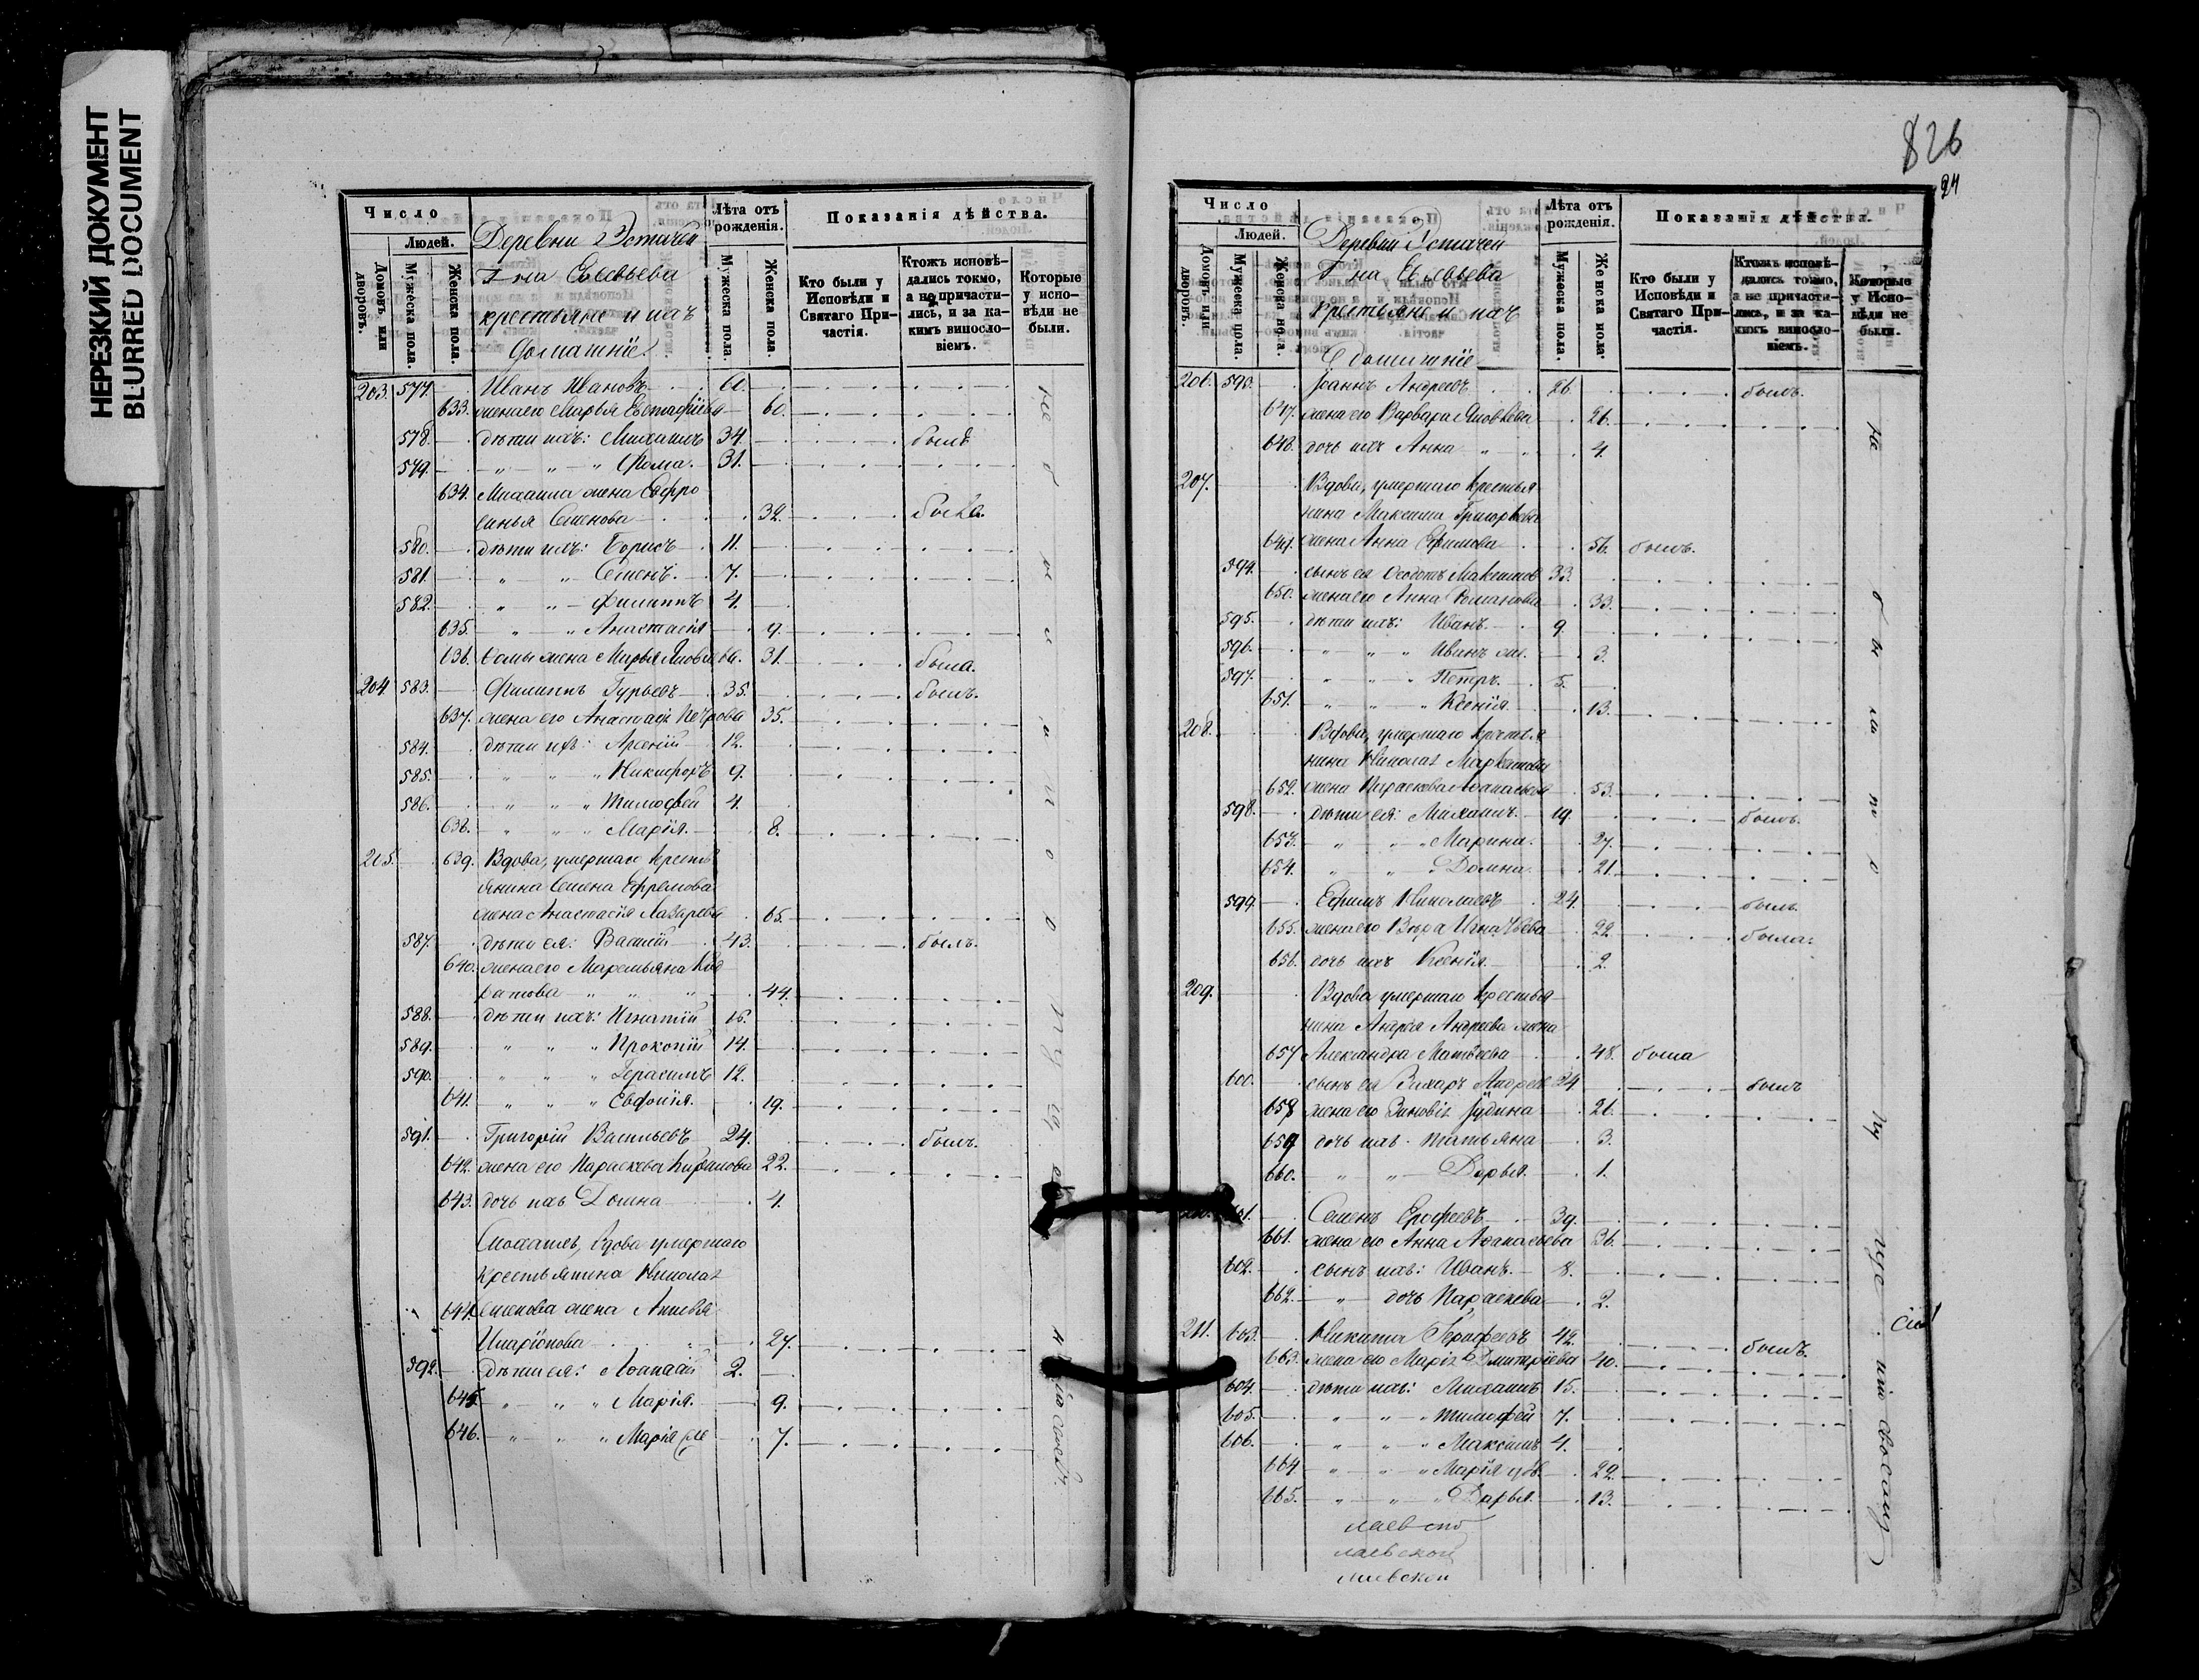 НЕРЕЗКИЙ ДОКУМЕНТ
BLURRED DOCUMENT
Число
Людей.
Домовъ или дворовъ.
Мужеска пола.
Женска пола.
Деревни
крестьяне и ихъ
домашніе.
Лѣта отъ рожденія.
Мужеска пола.
Женска пола.
Показанія дѣйства.
Кто были у Исповѣди и Святаго Причастія.
Ктожъ исповѣдались токмо, а не причастились, и за какимъ винословіемъ.
Которые у исповѣди не были.
203. 577. Иванъ Ивановъ 60.
633. жена его Марья Евстафіева 60.
578. дѣти ихъ: Михаилъ 34. былъ
579. „ „ Ѳома. 31.
634. Михаила жена Евфро
синья Семенова 32. была.
580. дѣти ихъ: Борисъ 11.
581. „ „ Семенъ. 7.
582. „ „ Филиппъ 4.
635. „ „ Анастасія 9.
636. Ѳомы жена Марья Яковлева. 31. была.
204 583. Филиппъ Гурьевъ 35. былъ.
637. жена его Анастасія Петрова 35.
584. дѣти ихъ: Арсеній 12.
585. „ „ „ Никифоръ 9.
586. „ „ „ Тимофей 4.
638. „ „ „ Марія. 8.
205. 639. Вдова, умершаго кресть
янина Семена Ефремова
жена Анастасія Лазарева 65.
587. дѣти ея: Василій 43. былъ.
640. жена его Маремьяна Код
ратова „ „ „ 44.
588. дѣти ихъ: Игнатій 16.
589. „ „ „ Прокопій 14.
590. „ „ „ Герасимъ 12.
641. „ „ „ Евфимія. 19.
591. Григорій Васильевъ 24. былъ.
642. жена его Параскева 22.
643. дочь ихъ Домна 4.
Вдова умершаго
крестьянина Николая
644. Семенова жена
Иларіонова 27.
592. дѣти ея: Аѳанасій 2.
645. „ „ „ Марія. 9.
646. „ „ „ Марія 7.
826
24
Число
Людей.
Домовъ или дворовъ.
Мужеска пола.
Женска пола.
Деревни
крестьяне и ихъ
домашніе
Лѣта отъ рожденія.
Мужеска пола.
Женска пола.
Показанія дѣйства.
Кто были у Исповѣди и Святаго Причастія.
Ктожъ исповѣдались токмо, а не причастились, и за какимъ винословіемъ.
Которые у Исповѣди не были.
206. 593. Іоаннъ Андреевъ 26. былъ.
647. жена его Варвара Яковлева 26.
648. дочь ихъ Анна „ „ 4.
207. Вдова, умершаго крестья
нина Максима Григорьева
649. жена Анна Ефимова 56. былъ.
594. сынъ ея Ѳеодотъ Максимовъ 33.
650. жена его Анна Романова 33.
595. дѣти ихъ: Иванъ. 9.
596. „ „ „ Иванъ 3.
597. „ „ „ Петръ. 5.
651. „ „ „ Ксенія. 13.
208. Вдова, умершаго крестья
нина Николая
652. жена Параскева Аѳанасьева 53.
598. дѣти ея: Михаилъ. 19. былъ.
653. „ „ „ Марина. 27.
654. „ „ „ Домна. 21.
599. Ефимъ Николаевъ 24. былъ.
655. жена его Вѣра Игнатьева 22 была.
656. дочь ихъ Ксенія. 2.
209. Вдова умершаго крестья
нина Андрея Андреева жена
657 Александра Матвѣева 48. была
600. сынъ ея Захаръ Андреевъ 24 былъ
658 жена его Зиновія Іудина 26.
659 дочь ихъ Татьяна 3.
660. „ „ Дарья. 1.
601. Семенъ Ерофеевъ 39.
661. жена его Анна Аѳанасьева 36.
602. сынъ ихъ: Иванъ. 8.
662. „ дочь Параскева 2.
211. 603. Никита Ерофеевъ 42. былъ.
663. жена его Марія Дмитріева 40.
604. дѣти ихъ: Михаилъ 15.
605. „ „ „ Тимофей 7.
606. „ „ „ Максимъ 4.
664 „ „ „ Марія 22.
665. „ „ „ Дарья. 13.
лаевско
лаевской
лаевской